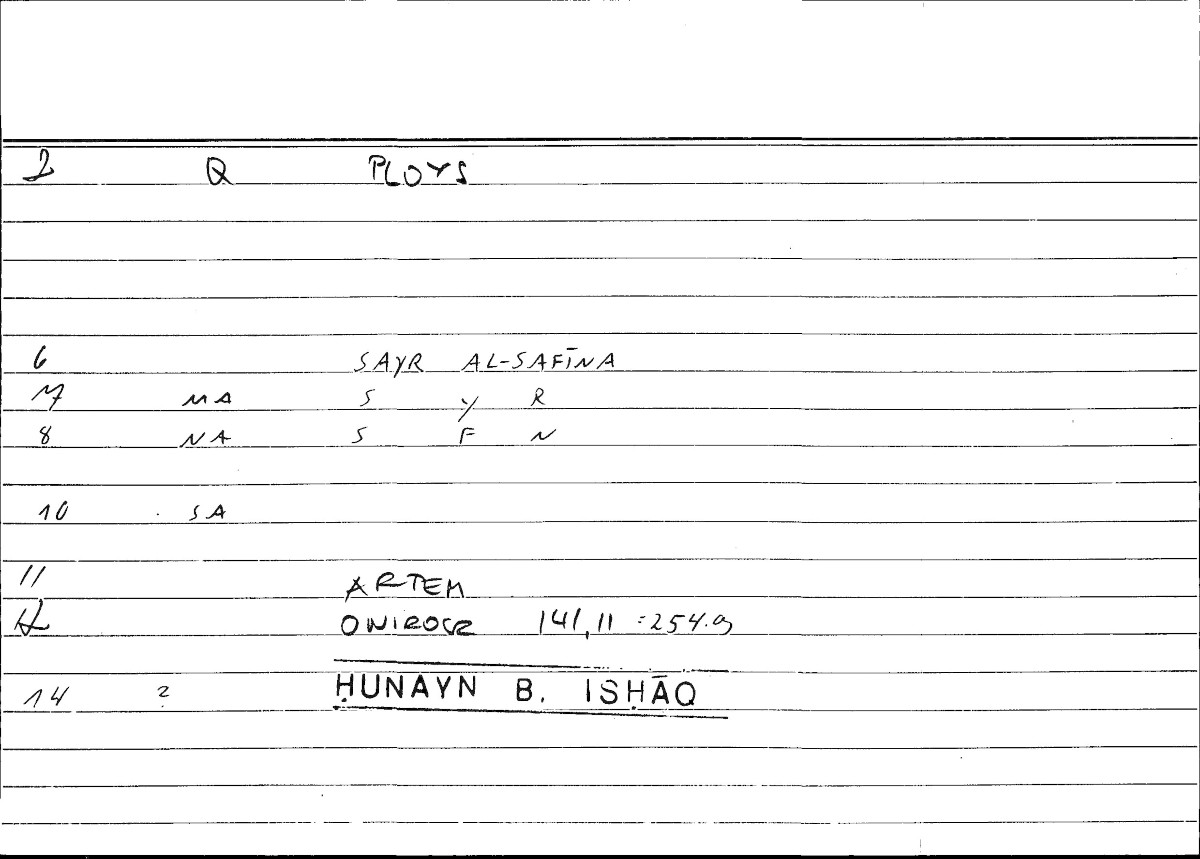 2 Q PLOYS
6 SAYR AL-SAFĪNA
7 MA S Y R
8 NA S F N
10 SA
11 ARTEM
12 ONIROCR 141,11 = 254.9
14 2 ḤUNAYN B. ISḤĀQ